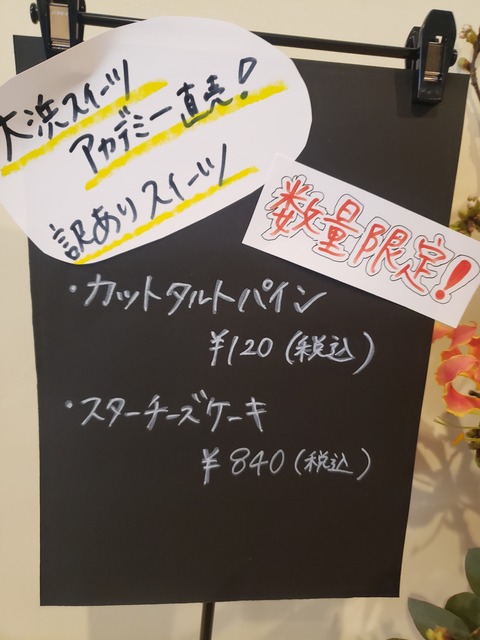 大浜スイーツ
アカデミー直売!
訳ありスイーツ
数量限定!
・カットタルトパイン
¥120(税込)
・スターチーズケーキ
¥840(税込)